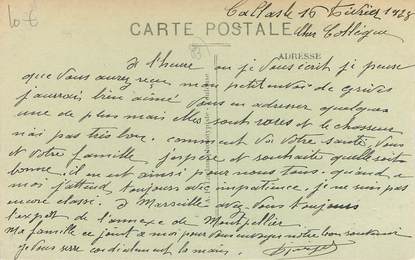 10 €
Callas le 16 Février 1923
CARTE POSTALE
Cher Collègue
ADRESSE
A l'heure ou je vous écrit je pense
que vous aurez reçu mon petit envoi de grives
j'aurais bien aimé vous en adresser quelques
une de plus mais elles sont rares et le chasseur
n'ai pas très bon. comment va votre santé, vous
et votre famille j'espère et souhaite quelle soit
bonne. il en est ainsi pour nous tous. quand a
moi j'attend toujours avec impatience. je ne suis pas
encore classé. A Marseille avez vous toujours
l'espoir de l'annexe de Montpellier
Ma famille ce joint a moi pour vous envoyer notre bon souvenir
je vous serre cordialement la main.